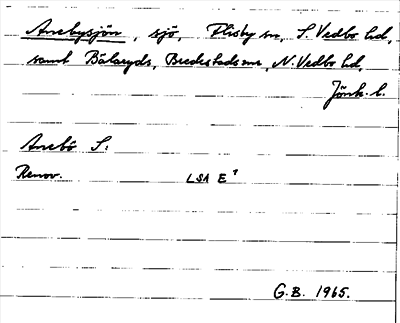 Anebysjön, sjö, Flisby sn, S. Vedbo hd,
samt Bälaryds, Bredestads snr, N. Vedbo hd,
Jönk. l.
Anebö S:
Renov. LSA E⁹
G.B. 1965.